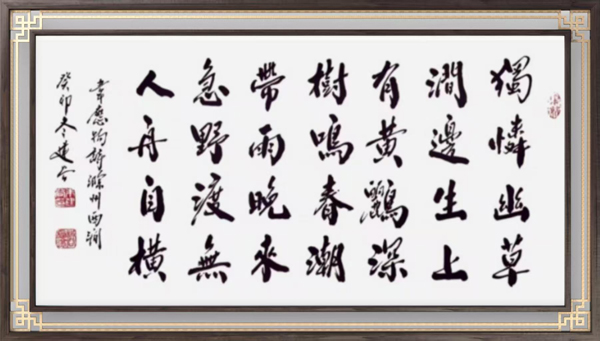 獨憐幽草
澗邊生上
有黃鸝深
樹鳴春潮
帶雨晚來
急野渡無
人舟自橫
韋應物詩滁州西澗
癸卯冬建